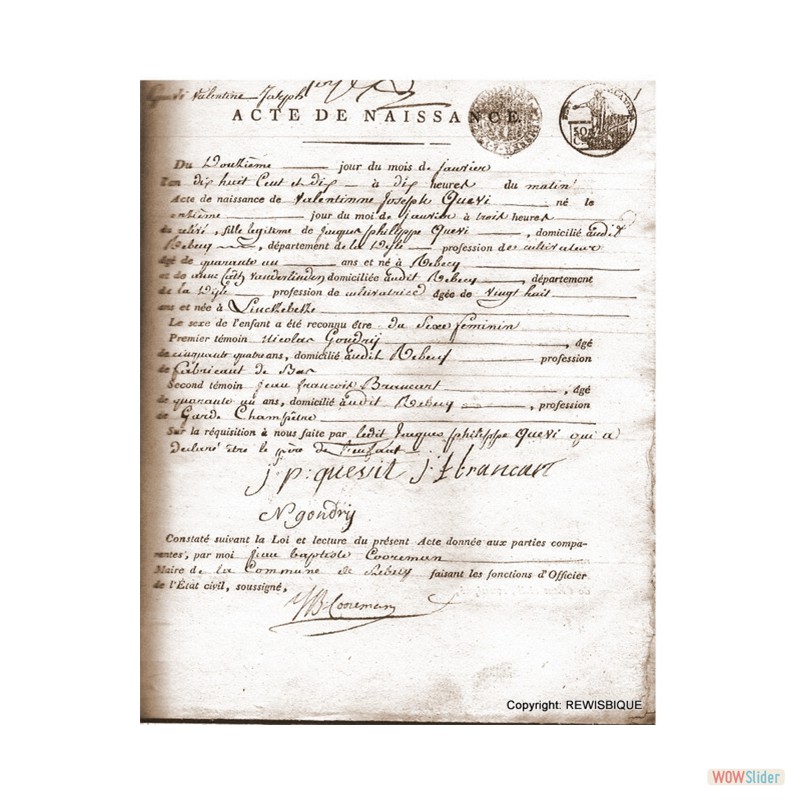 Quevi Valentine Joseph
ACTE DE NAISSANCE.
50
Du Douzieme jour du mois de janvier
l'an dix huit Cent et dix à dix heures du matin
Acte de naissance de Valentinne Joseph Quevi né le
onzieme jour du moi de janvier à trois heures
du relevé, fille legitime de jacques philippe Quevi, domicilié audit
Rebecq, département de la Dyle profession de cultivateur
âgé de quarante un ans et né à Rebecq
et de Vanderlinden domiciliée audit Rebecq, département
de la Dyle profession de cultivatrice âgée de vingt huit
ans et née à
Le sexe de l'enfant a été reconnu être du Sexe feminin
Premier témoin Nicolas Gondrij, âgé
de cinquante quatre ans, domicilié audit Rebecq profession
de fabricant de Bas
Second témoin jean francois Brancart, âgé
de quarante un ans, domicilié audit Rebecq, profession
de Garde Champêtre
Sur la réquisition à nous faite par ledit Jacques philippe Quevi qui a
declaré être le père de l'enfant
j:p:quevit j:f brancart
N gondrij
Constaté suivant la Loi et lecture du présent Acte donnée aux parties compa-
rantes, par moi jean baptiste Cooreman
Maire de la Commune de Rebecq faisant les fonctions d'Officier
de l'État civil, soussigné,
JB Cooreman
Copyright: REWISBIQUE
WOWSlider